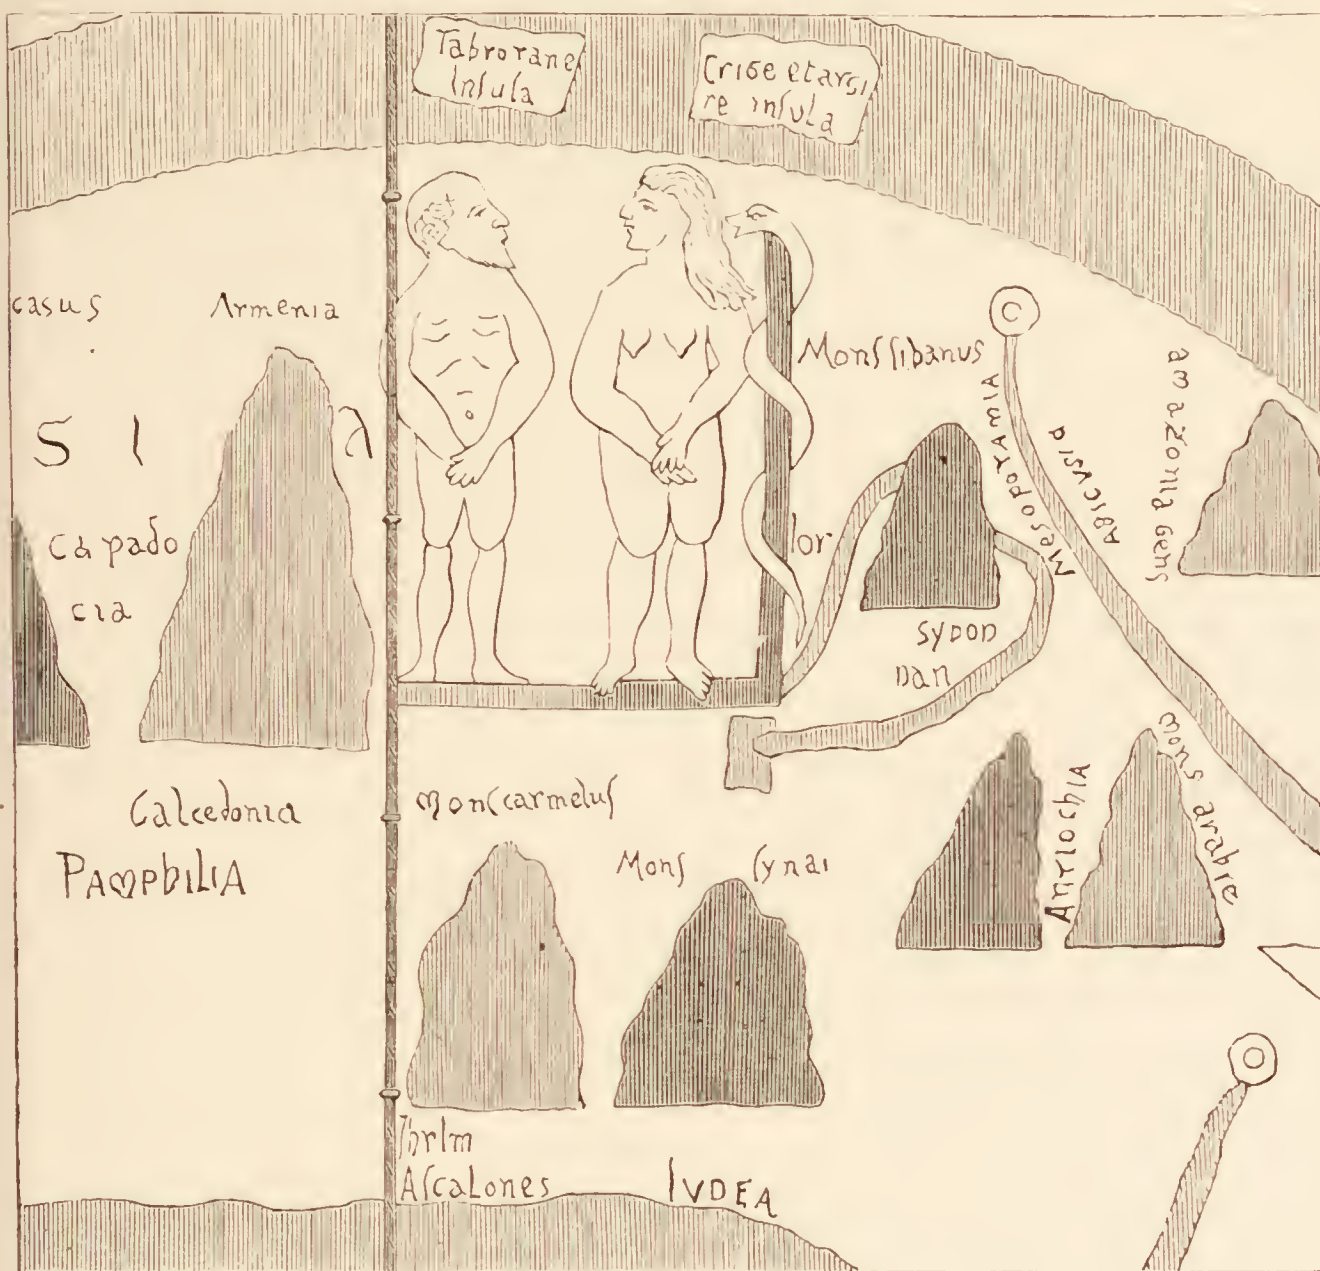 Tabrorane
Inſula
Criſe et arsi
re inſvla
casus
Armenia
Monſ libanus
S I A
capado
cia
Ior
Mesopotamia
Abicvsia
amazonia gens
sydon
Dan
Calcedonia
Pamphilia
Monſ carmeluſ
Monſ ſynai
Antiochia
mons arabie
Jhrlm
Aſcalones
IVDEA